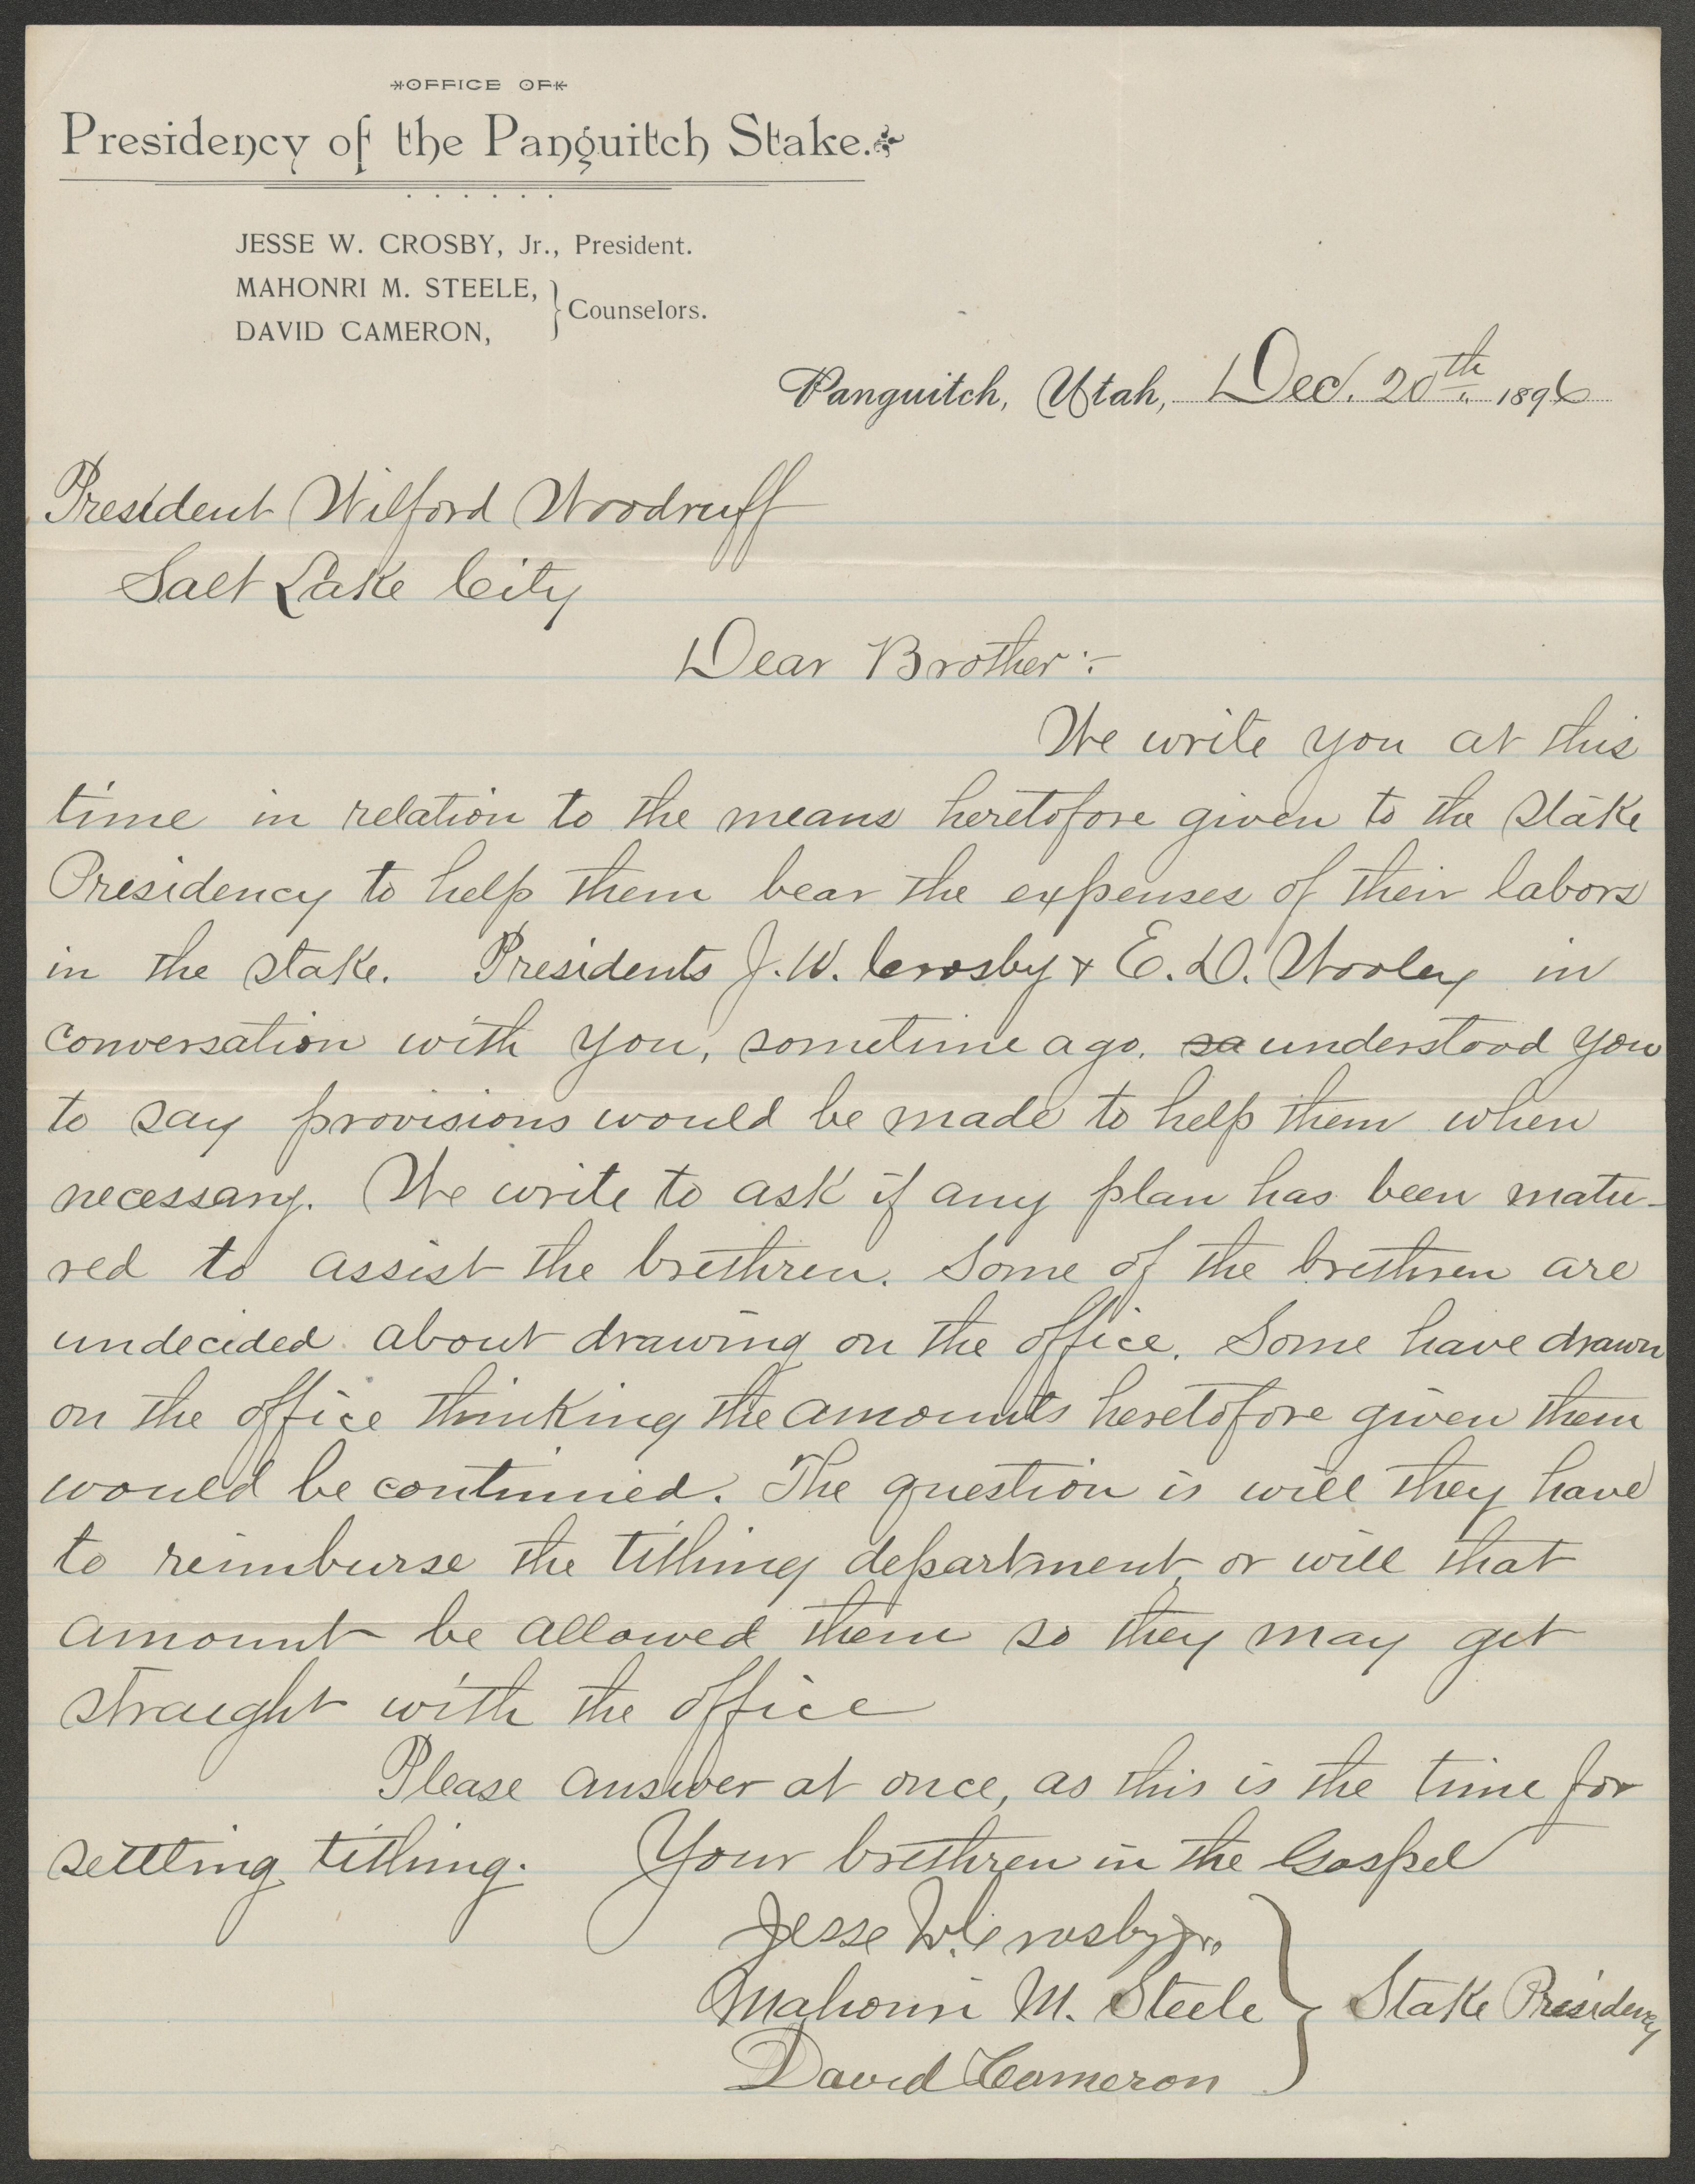 OFFICE OF
Presidency of the Panguitch Stake.
JESSE W. CROSBY, Jr., President.
MAHONRI M. STEELE,
DAVID CAMERON,
} Counselors.
Panguitch, Utah, Dec. 20th. 1896
President Wilford Woodruff
Salt Lake City
Dear Brother:-
We write you at this
time in relation to the means heretofore given to the Stake
Presidency to help them bear the expenses of their labors
in the stake. Presidents J. W. Crosby & E. D. Wooley in
conversation with you, sometime ago, sa understood you
to say provisions would be made to help them when
necessary. We write to ask if any plan has been matu-
red to assist the brethren. Some of the brethren are
undecided about drawing on the office. Some have drawn
on the office thinking the amounts heretofore given them
would be continued. The question is will they have
to reimburse the tithing department, or will that
amount be allowed them so they may get
straight with the office
Please answer at once, as this is the time for
settling tithing. Your brethren in the Gospel
Jesse W. Crosby Jr.
Mahonri M. Steele } Stake Presidency
David Cameron